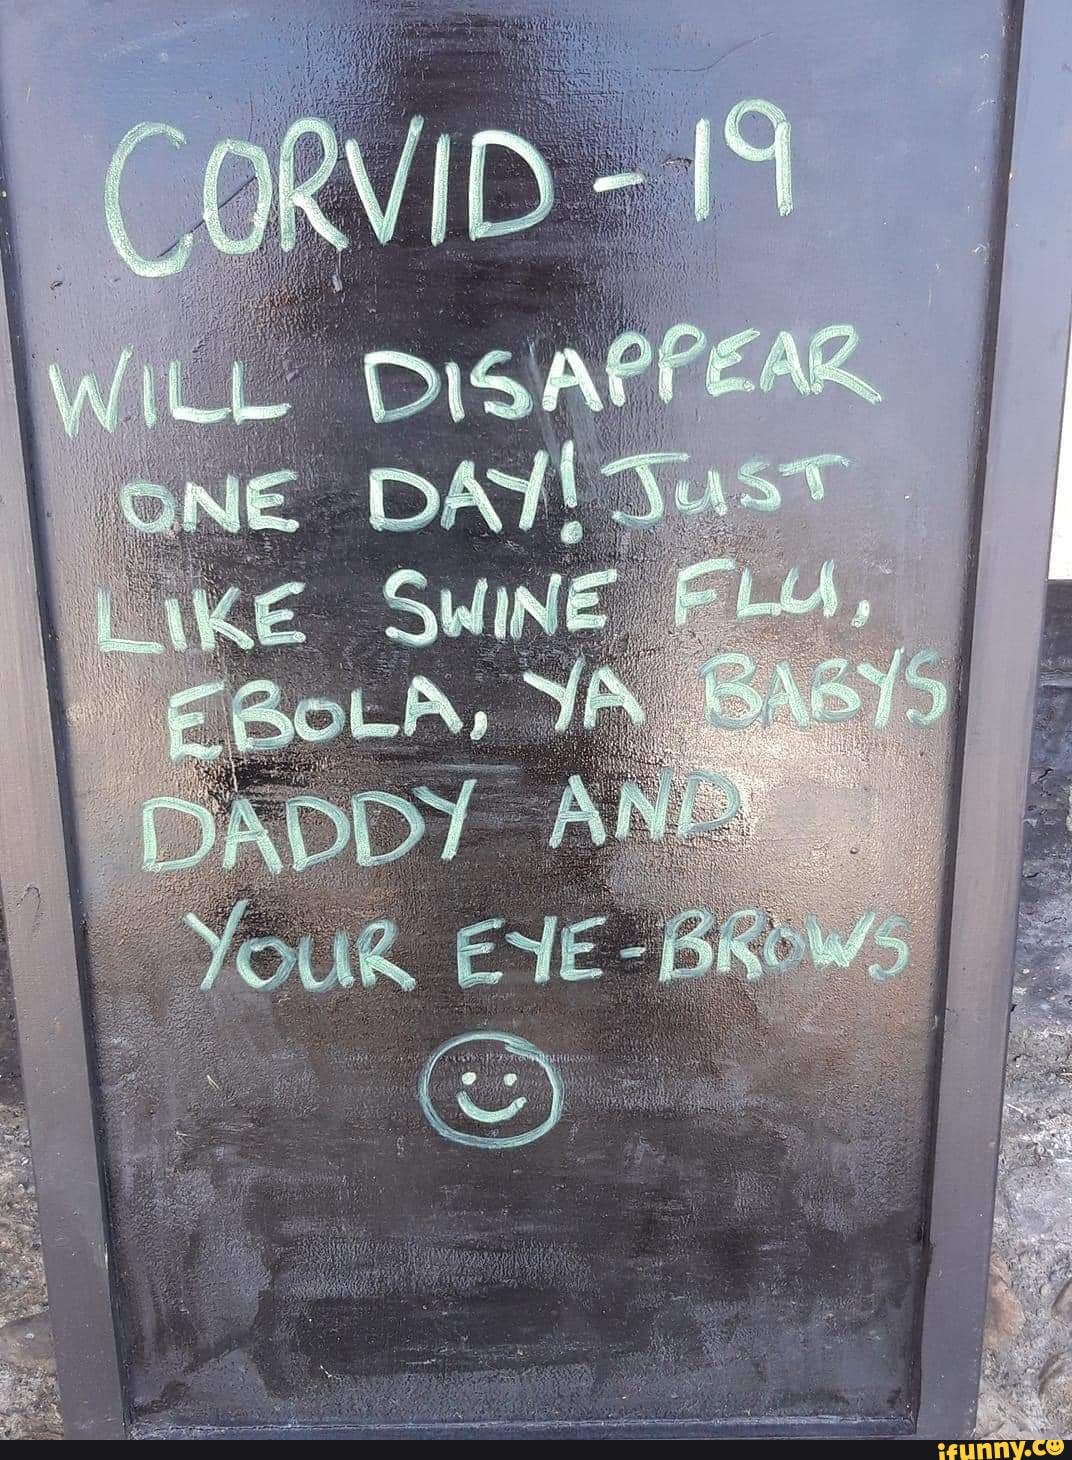 CORVID-19
WILL DISAPPEAR
ONE DAY! JUST
LIKE SWINE FLU,
EBOLA, YA BABYS
DADDY AND
YOUR EYE-BROWS
ifunny.co